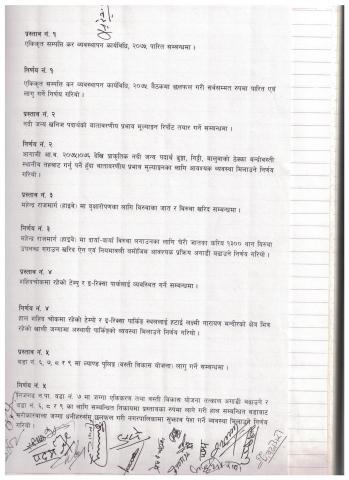 प्रस्ताव नं. १
एकिकृत सम्पत्ति कर व्यवस्थापन कार्यविधि, २०७५ पारित सम्बन्धमा ।
निर्णय नं. १
एकिकृत सम्पत्ति कर व्यवस्थापन कार्यविधि, २०७५ बैठकमा छलफल गरी सर्वसम्मत रुपमा पारित एवं
लागु गर्ने निर्णय गरियो ।
प्रस्ताव नं. २
नदी जन्य खनिज पदार्थको वातावरणीय प्रभाव मूल्याङ्कन रिपोर्ट तयार गर्ने सम्बन्धमा ।
निर्णय नं. २
आगामी आ.व. २०७५/०७६ देखि प्राकृतिक नदी जन्य पदार्थ ढुङ्गा, गिट्टी, बालुवाको ठेक्का बन्दोबस्ती
स्थानीय तहबाट गर्नु पर्ने हुँदा वातावरणीय प्रभाव मूल्याङ्कनका लागि आवश्यक व्यवस्था मिलाउने निर्णय
गरियो ।
प्रस्ताव नं. ३
महेन्द्र राजमार्ग (हाइवे) मा वृक्षारोपणका लागि विरुवाका जात र विरुवा खरिद सम्बन्धमा ।
निर्णय नं. ३
महेन्द्र राजमार्ग (हाइवे) मा दायाँ-बायाँ विरुवा लगाउनका लागि जातका करिब १३०० थान विरुवा
उपलब्ध गराउन खरिद ऐन एवं नियमावली बमोजिम आवश्यक प्रक्रिया अगाडी बढाउने निर्णय गरियो ।
प्रस्ताव नं. ४
शहिदचोकमा रहेको टेम्पु र इ-रिक्सा पार्कलाई व्यवस्थित गर्ने सम्बन्धमा ।
निर्णय नं. ४
हाल शहिद चोकमा रहेको टेम्पो र इ-रिक्सा पार्किङ स्थललाई हटाई लक्ष्मी नारायण मन्दीरको क्षेत्र भित्र
रहेको खाली जग्गामा अस्थायी पार्किङको व्यवस्था मिलाउने निर्णय गरियो ।
प्रस्ताव नं. ५
वडा नं. ६, ७, ८ र ९ मा ल्याण्ड पुलिङ्ग (वस्ती विकास योजना) लागु गर्ने सम्बन्धमा ।
निर्णय नं. ५
निजगढ न.पा. वडा नं. ७ मा जग्गा एकिकरण तथा वस्ती विकास योजना तत्काल अगाडी बढाउने र
वडा नं. ६, ८ र ९ का लागि सम्बन्धित निकायमा प्रस्तावका रुपमा लागे गरी हाल सम्बन्धित वडाबाट
सरोकारवाला जग्गा धनीहरुसँग छलफल गरी नगरपालिकामा सुझाव पेश गर्ने व्यवस्था मिलाउने निर्णय
गरियो ।